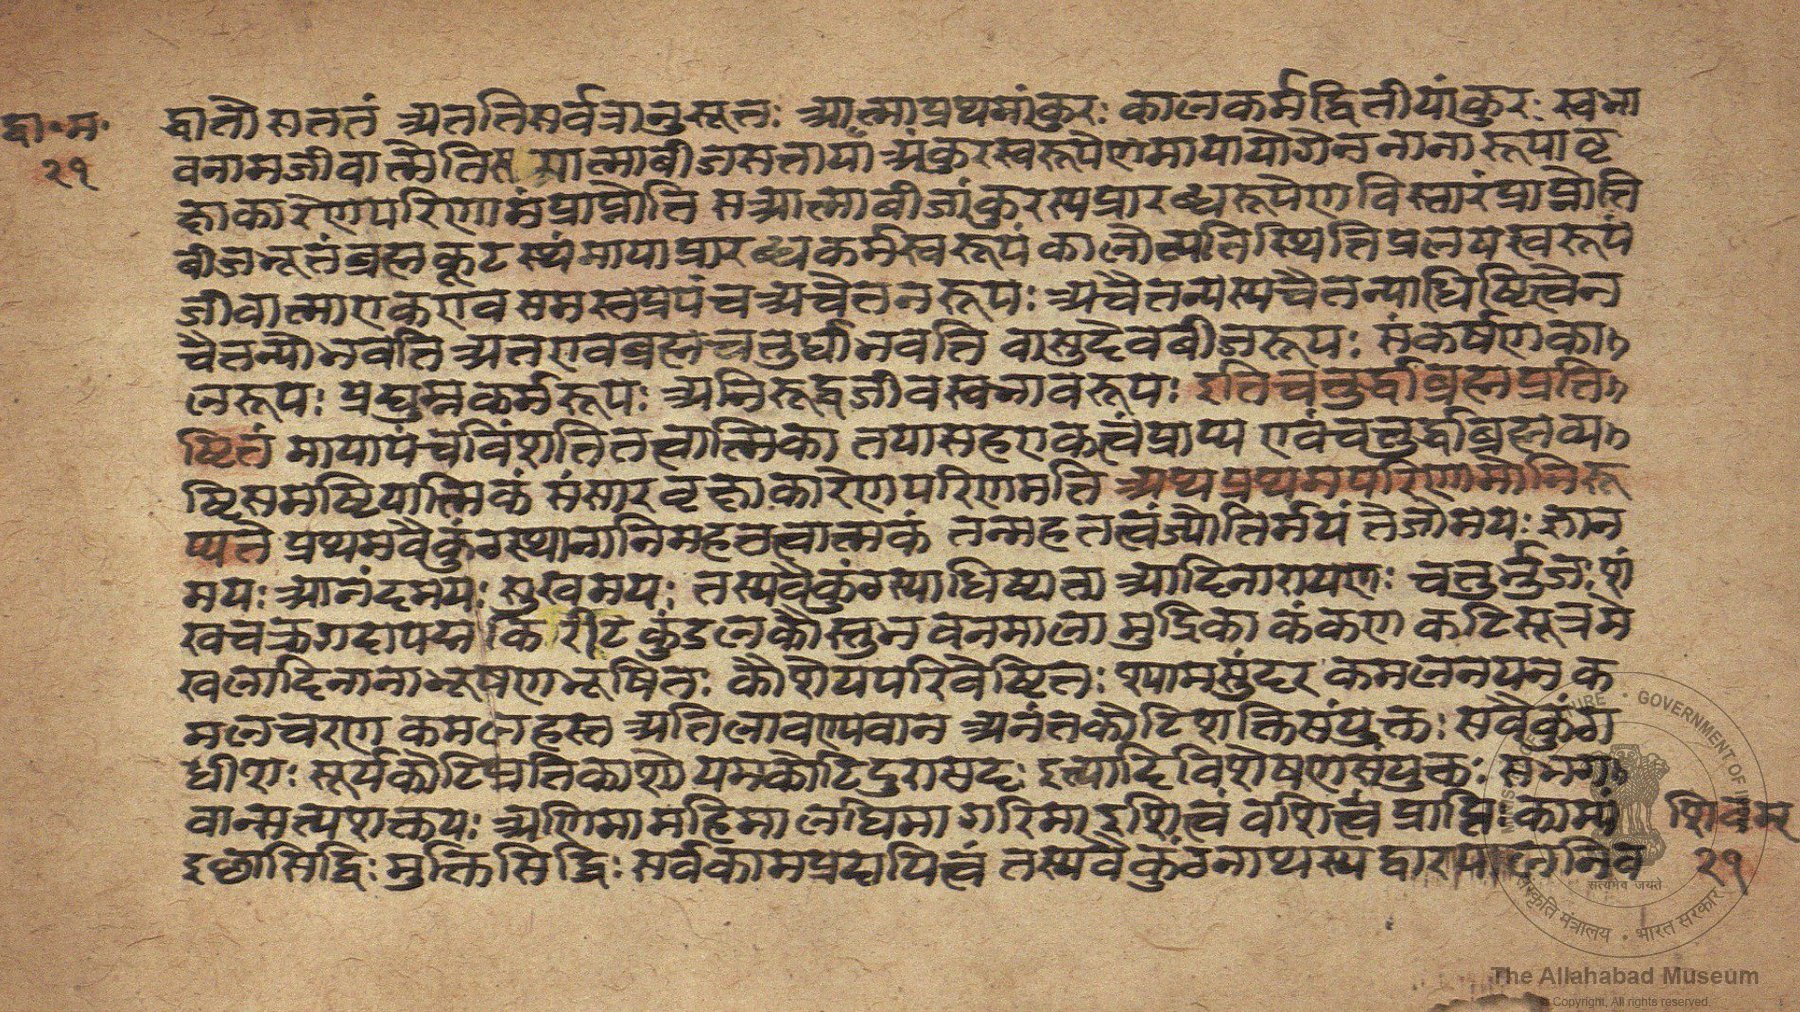 द्वा॰म॰
२१
द्वातौ सततं अततिसर्वत्रानुस्यूतः आत्माप्रथमांकुरः कालकर्मद्वितीयांकुरः स्वभा
वनामजीवात्मेतिस आत्माबीजसत्तायां अंकुरस्वरूपेणमायायोगेन नानारूपावृ
क्षाकारेणपरिणामंप्राप्नोति सआत्माबीजांकुरस्यप्रारब्धरूपेण विस्तारंप्राप्नोति
बीजभूतंब्रह्मकूटस्थंमायाप्रारब्धकर्मस्वरूपं कालोत्पतिस्थितिप्रलयस्वरूपं
जीवात्माएकएव समस्तप्रपंचअचेतनरूपः अचैतन्यस्यचैतन्याधिष्टित्वेन
चैतन्योभवति अतएवब्रह्मचतुर्धाभवति वासुदेवबीजरूपः संकर्षणका
लरूपः प्रद्युम्नकर्मरूपः अनिरूद्धजीवस्वभावरूपः इतिचतुर्द्धाब्रह्मप्रति
ष्टितं मायापंचविंशतितत्वात्मिका तयासहएकत्वंप्राप्य एवंचतुर्द्धाब्रह्मव्य
ष्टिसमष्टियात्मिकं संसारवृक्षाकारेणपरिणमति अथप्रथमपरिणामोनिरू
प्यते प्रथमवैकुंठस्थानानिमहतत्वात्मकं तन्महतत्वंज्योतिर्मयं तेजोमयः ज्ञान
मयः आनंदमयः सुखमयः तस्यवैकुंठस्याधिष्टाता आदिनारायणः चतुर्भुजः शं
खचक्रगदापद्म किरीटकुंडलकौस्तुभ वनमाला मुद्रिका कंकण कटिसूत्रमे
खलादिनानाभूषणभूषितः कौशेयपरिवेष्टितः श्यामसुंदर कमलनयन क
मलचरण कमलहस्त अतिलावण्यवान अनंतकोटिशक्तिसंयुक्तः सवैकुंठा
धीशः सूर्यकोटिप्रतिकाशो यमकोटिदुरासदः इत्यादिविशेषणसंयुक्तः सभग
वान्सत्यशक्तयः अणिमामहिमा लघिमा गरिमा इशित्वं वशित्वं प्राप्ति कामां
इछासिद्धिः मुक्तिसिद्धिः सर्वकामप्रदायित्वं तस्यवैकुंठनाथस्य द्वारपालनिव
शिवम्
२१
MINISTRY OF CULTURE • GOVERNMENT OF INDIA
सत्यमेव जयते
संस्कृति मंत्रालय • भारत सरकार
The Allahabad Museum
© Copyright, All rights reserved.